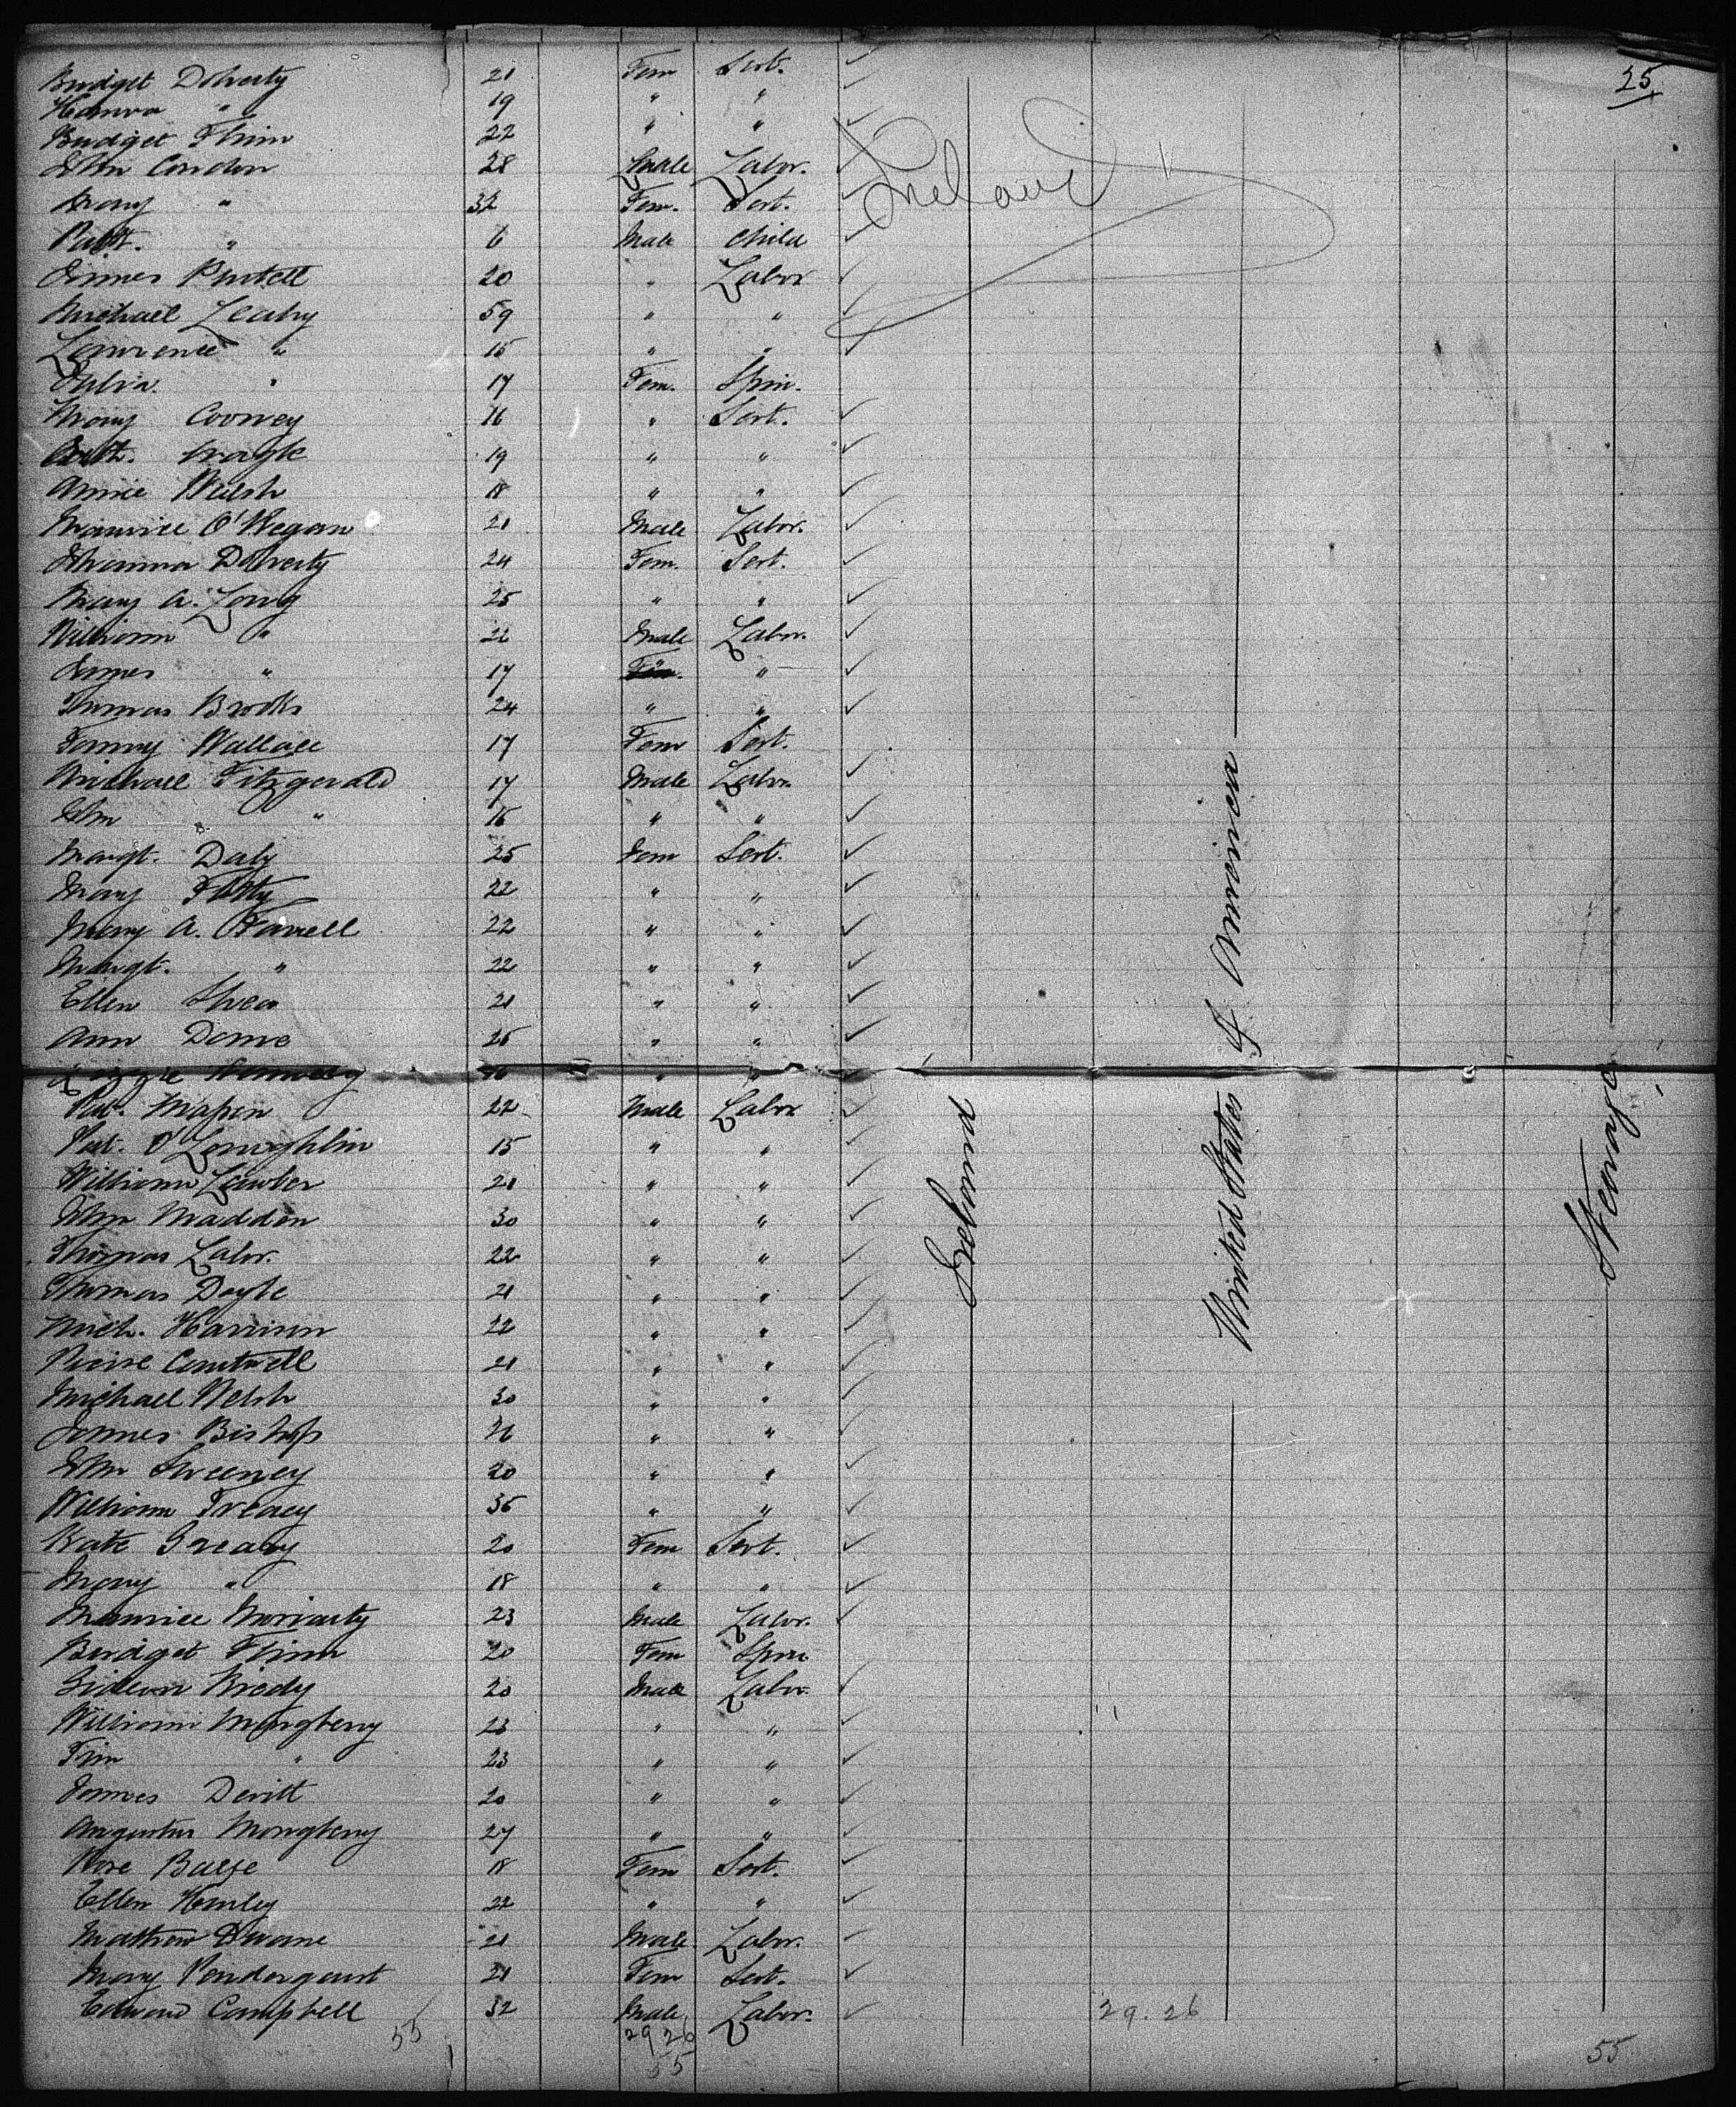 25
Bridget Doherty 21 Fem Sert.
Hanna " 19 " "
Bridget Flinn 22 " "
John Condon 28 Male Labor.
Mary " 32 Fem. Sert.
Patk. " 6 Male Child
James Purtell 20 " Labor
Michael Leahy 59 " "
Lawrence " 15 " "
Julia " 17 Fem. Spin.
Mary Cooney 16 " Sert.
Cath. 19 " "
Annie Welsh 18 " "
Maurice O'Regan 21 Male Labor.
Johanna Doherty 24 Fem. Sert.
Mary A. Long 25 " "
William " 22 Male Labor.
James " 17 "
Thomas Brooks 24 " "
Fanny Wallace 17 Fem Sert.
Michael Fitzgerald 17 Male Labor.
John " 16 " "
Margt. Daly 25 Fem Sert.
Mary 22 " "
Mary A. Farrell 22 " "
Margt. " 22 " "
Ellen Shea 21 " "
Ann 25 " "
Lizzie " "
Pat. 22 Male Labor
Pat. O'Loughlin 15 " "
William Lawler 21 " "
John Madden 30 " "
Thomas Lalor. 22 " "
Thomas Doyle 21 " "
Mich. Harrison 22 " "
Pierse Cantwell 21 " "
Michael Welsh 30 " "
James Bishop 26 " "
John Sweeney 20 " "
William Treacy 35 " "
Kate Greany 20 Fem Sert.
Mary " 18 " "
Maurice Moriarty 23 Male Labor.
Bridget Flinn 20 Fem Spin
Gideon 20 Male Labor.
William 23 " "
Tim " 23 " "
James Devitt 20 " "
Augustus 27 " "
Rose Balfe 18 Fem Sert.
Ellen Hanley 22 " "
Mathew Dwane 21 Male Labor.
Mary Pendergast 21 Fem Sert.
Edward Campbell 32 Male Labor.
Ireland
Ireland
United States of America
Steerage
29.26
55
29 26
55
55